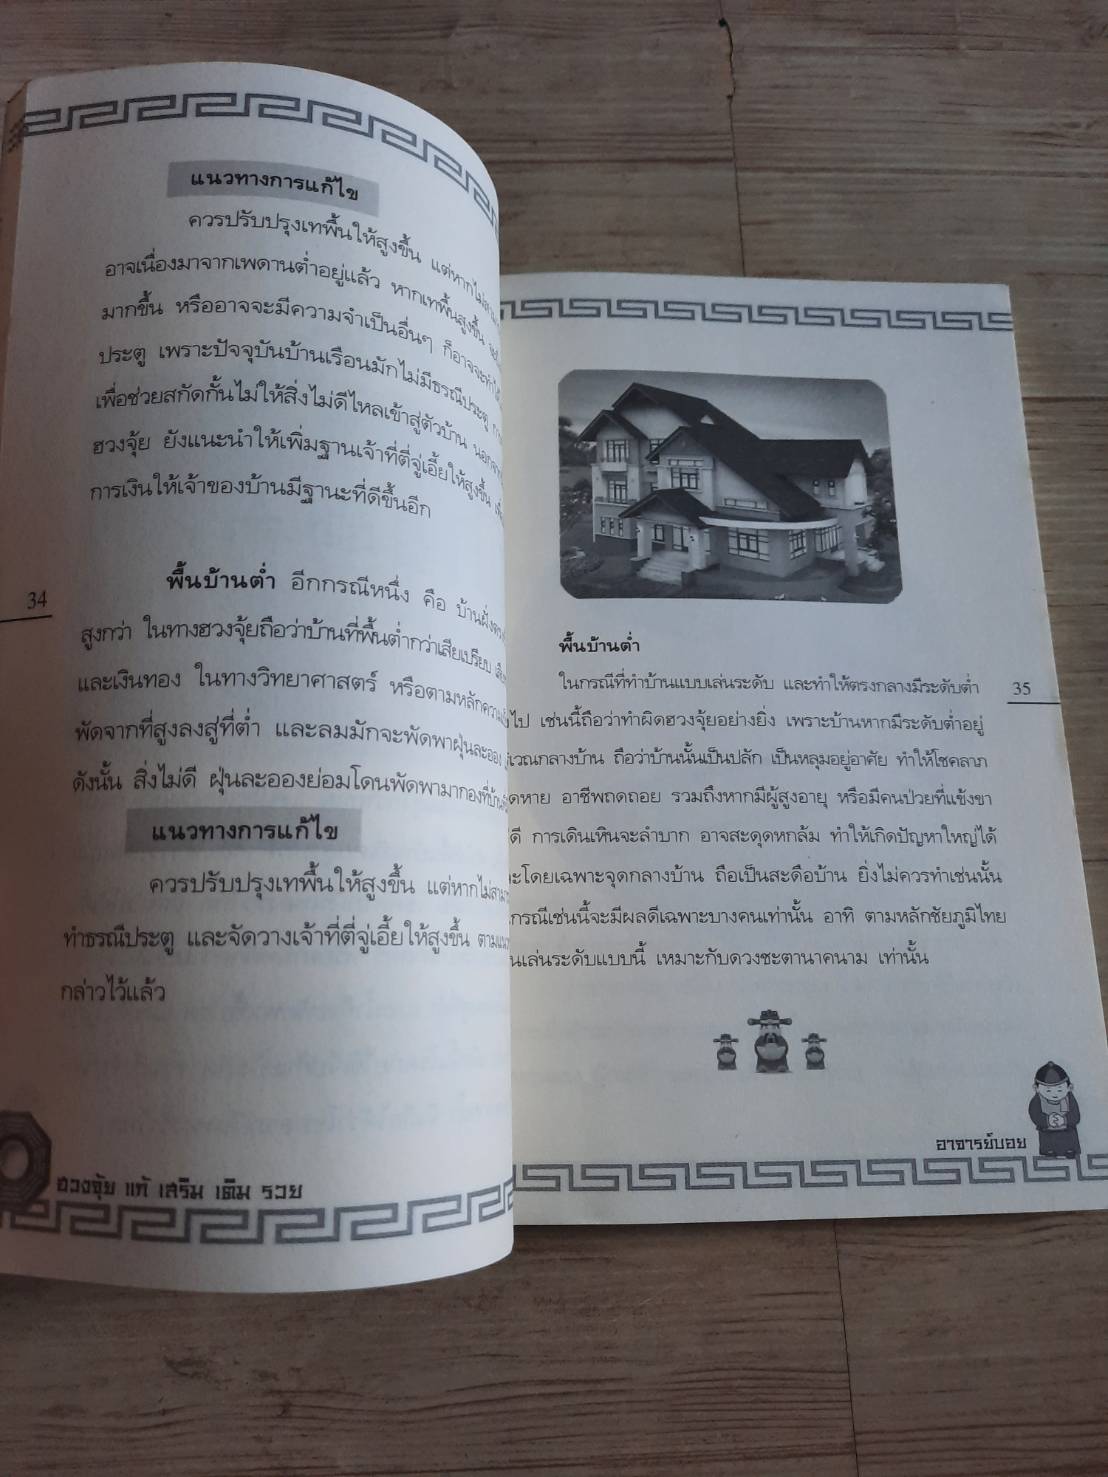 แนวทางการแก้ไข
ควรปรับปรุงเทพื้นให้สูงขึ้น แต่หากไม่
อาจเนื่องมาจากเพดานต่ำอยู่แล้ว หากเทพื้นสูงขึ้น
มากขึ้น หรืออาจจะมีความจำเป็นอื่นๆ ก็อาจจะทำ
ประตู เพราะปัจจุบันบ้านเรือนมักไม่มีธรณีประตู
เพื่อช่วยสกัดกั้นไม่ให้สิ่งไม่ดีไหลเข้าสู่ตัวบ้าน
ฮวงจุ้ย ยังแนะนำให้เพิ่มฐานเจ้าที่ตี่จู่เอี้ยให้สูงขึ้น
การเงินให้เจ้าของบ้านมีฐานะที่ดีขึ้นอีก
พื้นบ้านต่ำ อีกกรณีหนึ่ง คือ บ้านฝั่ง
สูงกว่า ในทางฮวงจุ้ยถือว่าบ้านที่พื้นต่ำกว่าเสียเปรียบ
และเงินทอง ในทางวิทยาศาสตร์ หรือตามหลัก
พัดจากที่สูงลงสู่ที่ต่ำ และลมมักจะพัดพาฝุ่นละออง
ดังนั้น สิ่งไม่ดี ฝุ่นละอองย่อมโดนพัดพามากองที่
แนวทางการแก้ไข
ควรปรับปรุงเทพื้นให้สูงขึ้น แต่หากไม่
ทำธรณีประตู และจัดวางเจ้าที่ตี่จู่เอี้ยให้สูงขึ้น
กล่าวไว้แล้ว
34
ฮวงจุ้ย แก้ เสริม เติม รวย
พื้นบ้านต่ำ
ในกรณีที่ทำบ้านแบบเล่นระดับ และทำให้ตรงกลางมีระดับต่ำ
ไป เช่นนี้ถือว่าทำผิดฮวงจุ้ยอย่างยิ่ง เพราะบ้านหากมีระดับต่ำอยู่
เวณกลางบ้าน ถือว่าบ้านนั้นเป็นปลัก เป็นหลุมอยู่อาศัย ทำให้โชคลาภ
ดหาย อาชีพถดถอย รวมถึงหากมีผู้สูงอายุ หรือมีคนป่วยที่แข้งขา
ดี การเดินเหินจะลำบาก อาจสะดุดหกล้ม ทำให้เกิดปัญหาใหญ่ได้
ะโดยเฉพาะจุดกลางบ้าน ถือเป็นสะดือบ้าน ยิ่งไม่ควรทำเช่นนั้น
กรณีเช่นนี้จะมีผลดีเฉพาะบางคนเท่านั้น อาทิ ตามหลักชัยภูมิไทย
นเล่นระดับแบบนี้ เหมาะกับดวงชะตานาคนาม เท่านั้น
35
อาจารย์บอย